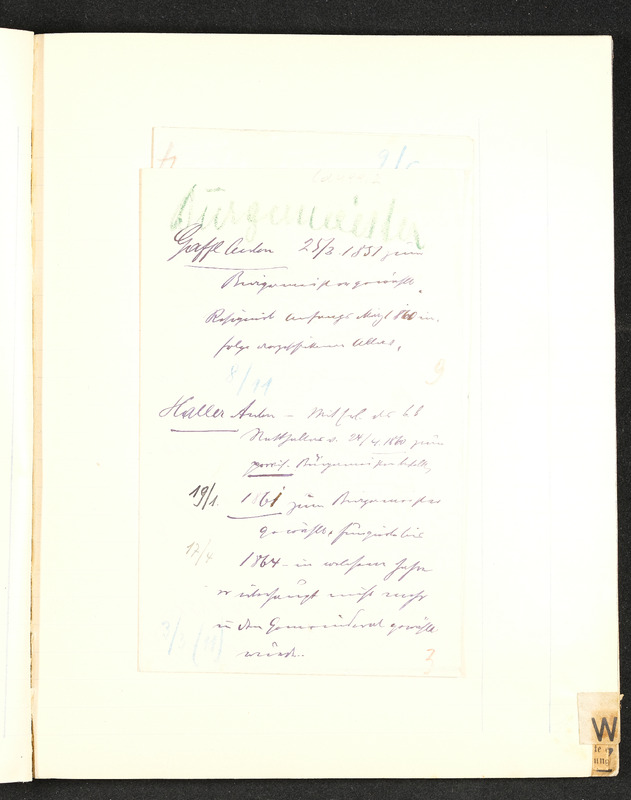 9/
Bürgermeister
Gassl Anton 25/3 1851 zum
Bürgermeister gewählt.
Resignirt anfangs März 1860 in-
folge vorgeschrittenen Alters.
9
8/11
Haller Anton – Mit Erl. der kk
Statthalterei v. 24/4 1860 zum
provis. Bürgermeister bestellt,
19/1. 1861 zum Bürgermeister
gewählt, fungirte bis
17/4 1864 – in welchem Jahre
er überhaupt nicht mehr
in den Gemeinderat gewählt
wurde.
3/3 (19)
3
W
te
ung